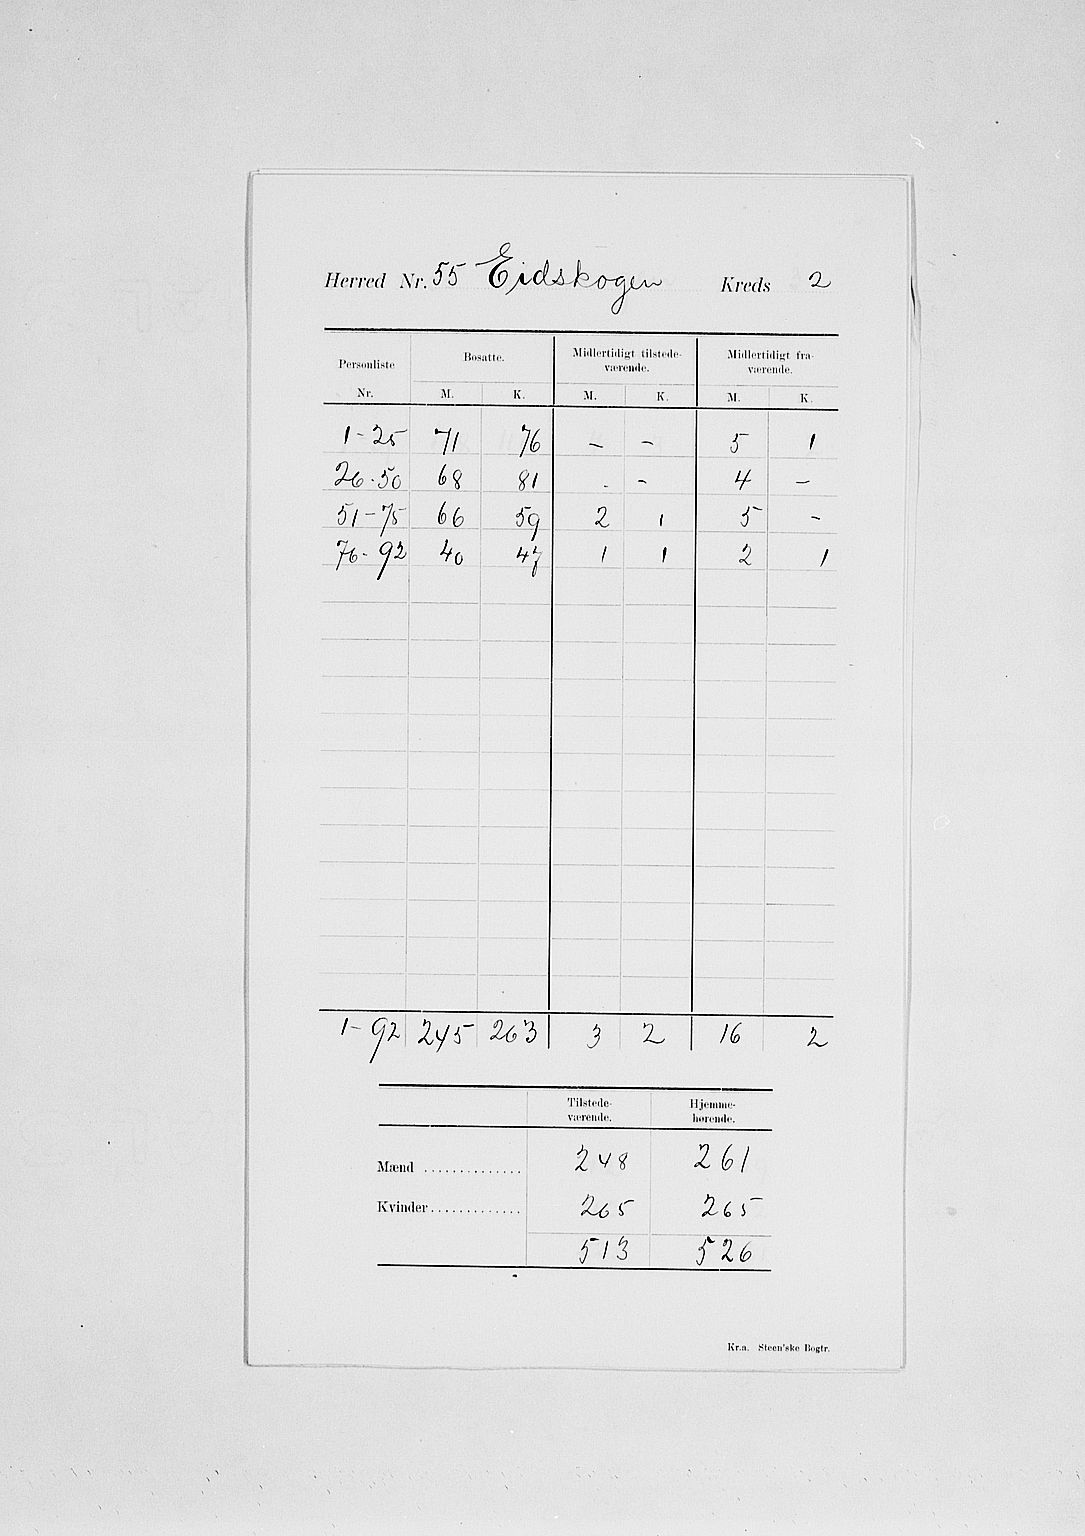 Herred Nr. 55 Eidskogen Kreds 2
Personliste Nr. Bosatte. Midlertidigt tilstede- værende. Midlertidigt fra- værende.
M. K. M. K. M. K.
1-25 71 76 - - 5 1
26-50 68 81 . - 4 -
51-75 66 59 2 1 5 -
76-92 40 47 1 1 2 1
1-92 245 263 3 2 16 2
Tilstede- værende. Hjemme- hørende.
Mænd .............. 248 261
Kvinder ............. 265 265
513 526
Kr.a. Steen'ske Bogtr.